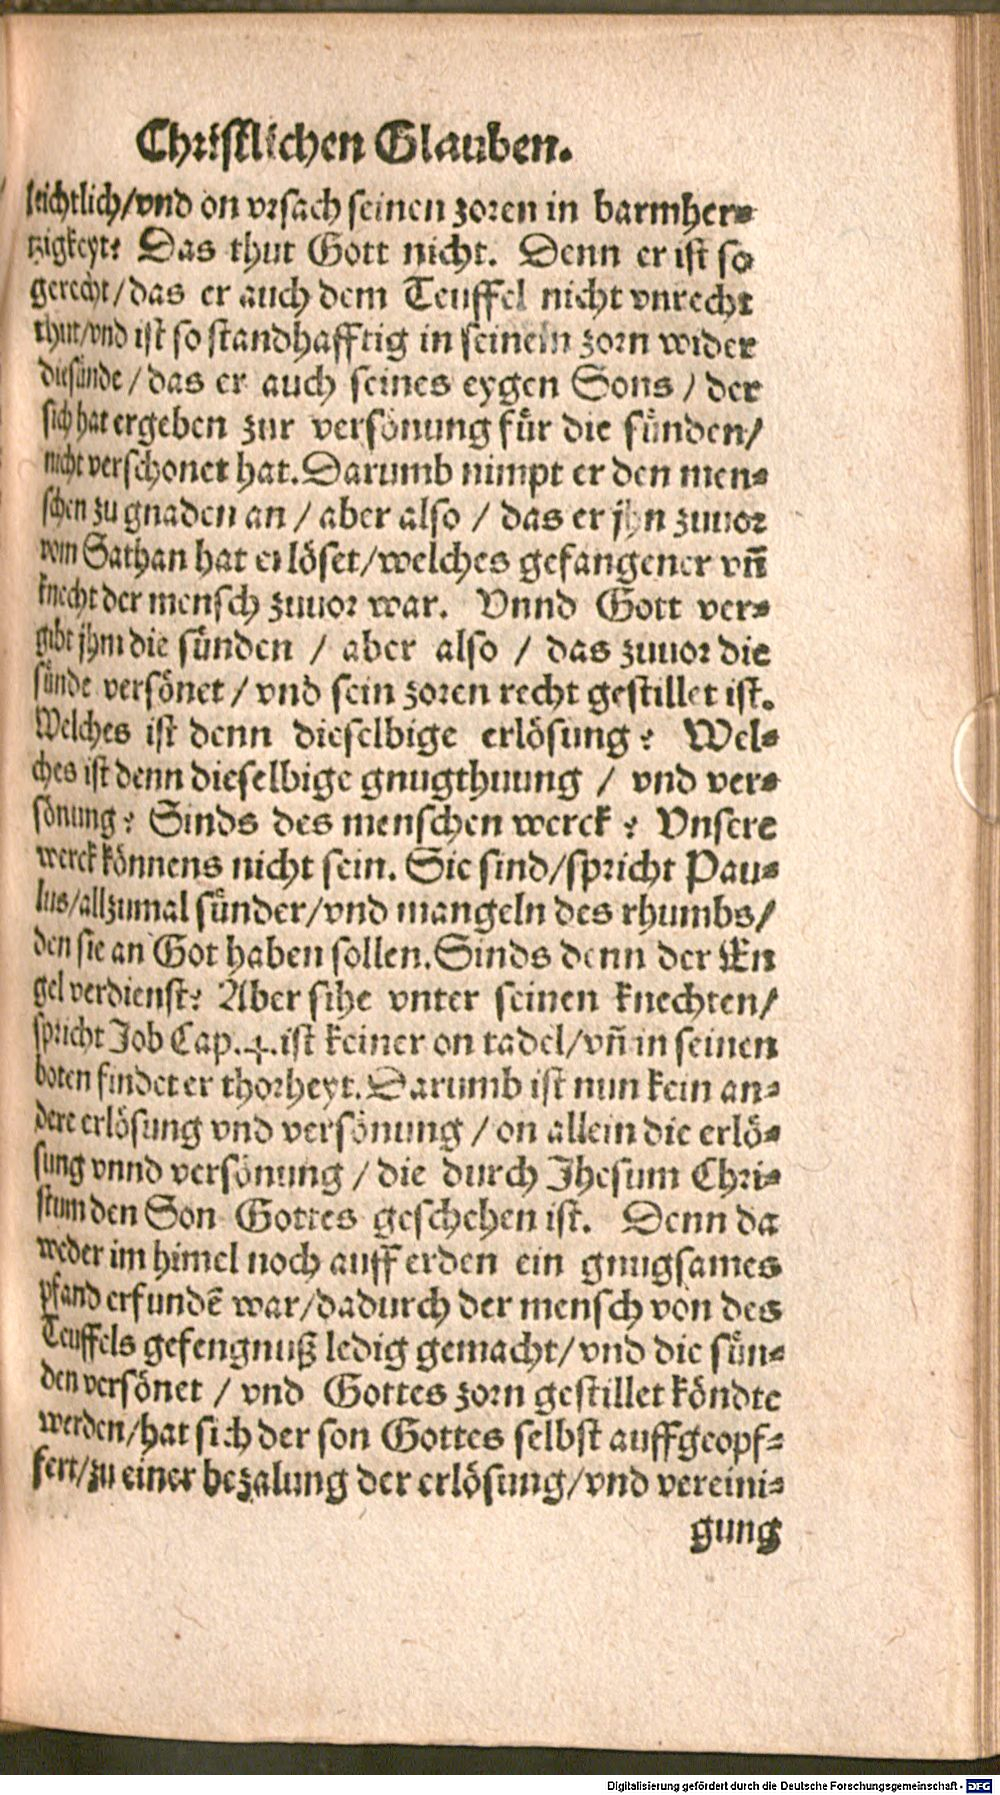 Christlichen Glauben.
leichtlich/vnd on vrsach seinen zoren in barmher⸗
tzigkeyt? Das thut Gott nicht. Denn er ist so
gerecht/das er auch dem Teuffel nicht vnrecht
thut/vnd ist so standhafftig in seinem zorn wider
die sünde/das er auch seines eygen Sons/der
sich hat ergeben zur versönung für die sünden/
nicht verschonet hat. Darumb nimpt er den men⸗
schen zu gnaden an/aber also/das er jhn zuuor
vom Sathan hat erlöset/welches gefangener vñ
knecht der mensch zuuor war. Vnnd Gott ver⸗
gibt jhm die sünden/aber also/das zuuor die
sünde versönet/vnd sein zoren recht gestillet ist.
Welches ist denn dieselbige erlösung? Wel⸗
ches ist denn dieselbige gnugthuung/vnd ver⸗
sönung? Sinds des menschen werck? Vnsere
werck können​s nicht sein. Sie sind/spricht Pau⸗
lus/allzumal sünder/vnd mangeln des rhumbs/
den sie an Got haben sollen. Sinds denn der En
gel verdienst? Aber sihe vnter seinen knechten/
spricht Job Cap. 4. ist keiner on tadel/vñ in seinen
boten findet er thorheyt. Darumb ist nun kein an⸗
dere erlösung vnd versönung/on allein die erlö⸗
sung vnnd versönung/die durch Jhesum Chri⸗
stum den Son Gottes geschehen ist. Denn da
weder im himel noch auff erden ein gnugsames
pfand erfundē war/dadurch der mensch von des
Teuffels gefengnuß ledig gemacht/vnd die sün⸗
den versönet/vnd Gottes zorn gestillet köndte
werden/hat sich der son Gottes selbst auffgeopf⸗
fert/zu einer bezalung der erlösung/vnd vereini⸗
gung
Digitalisierung gefördert durch die Deutsche Forschungsgemeinschaft - DFG